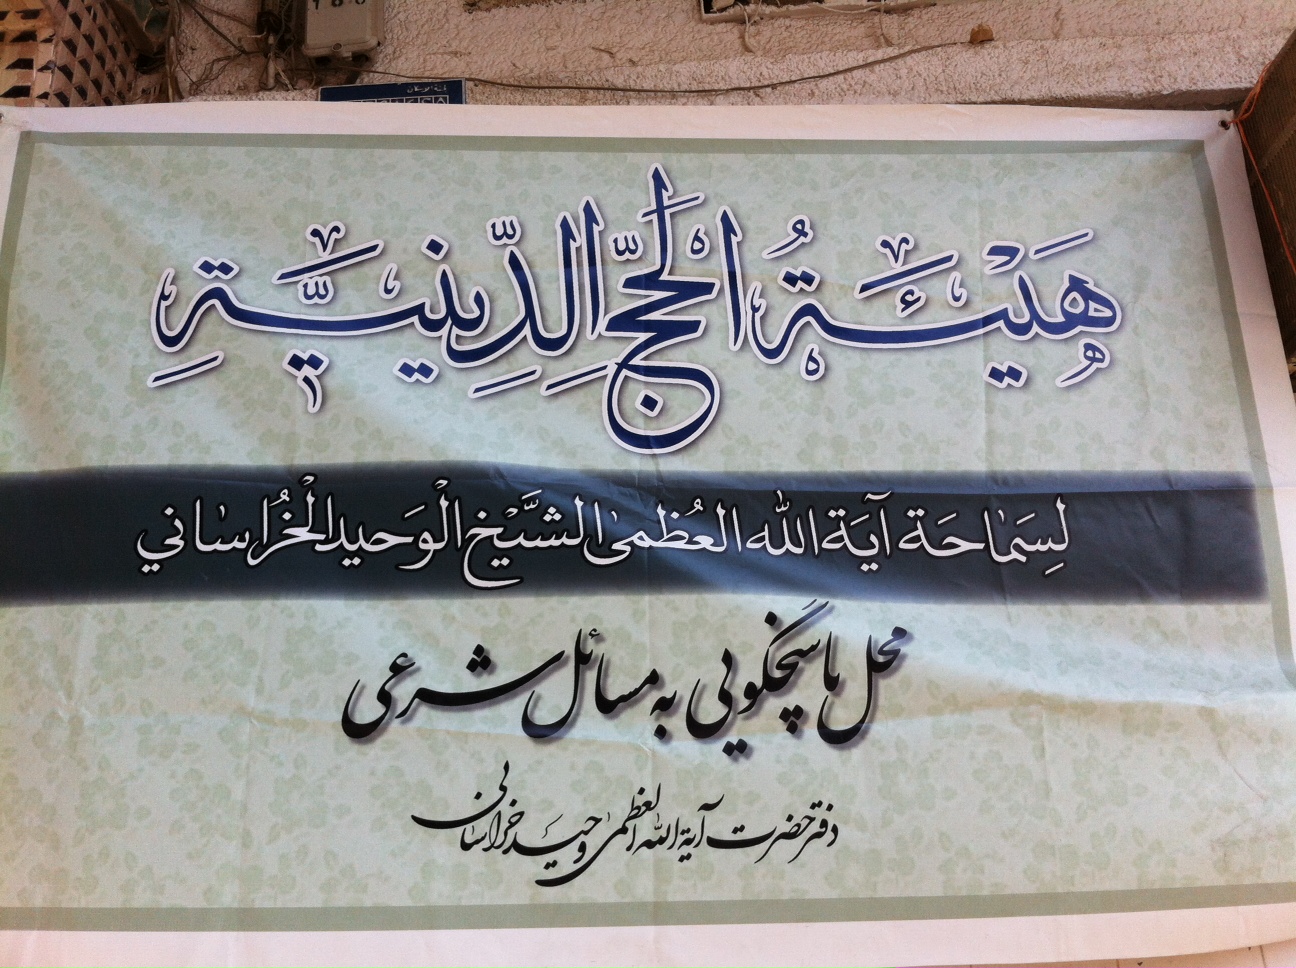 هَيْئَةُ الْحَجِّ الدِّينِيَّةِ
لِسَمَاحَة آيَة الله العُظمى الشَّيْخ الْوَحيد الْخُرَاساني
محل پاسخگویی به مسائل شرعی
دفتر حضرت آیة الله العظمی وحید خراسانی